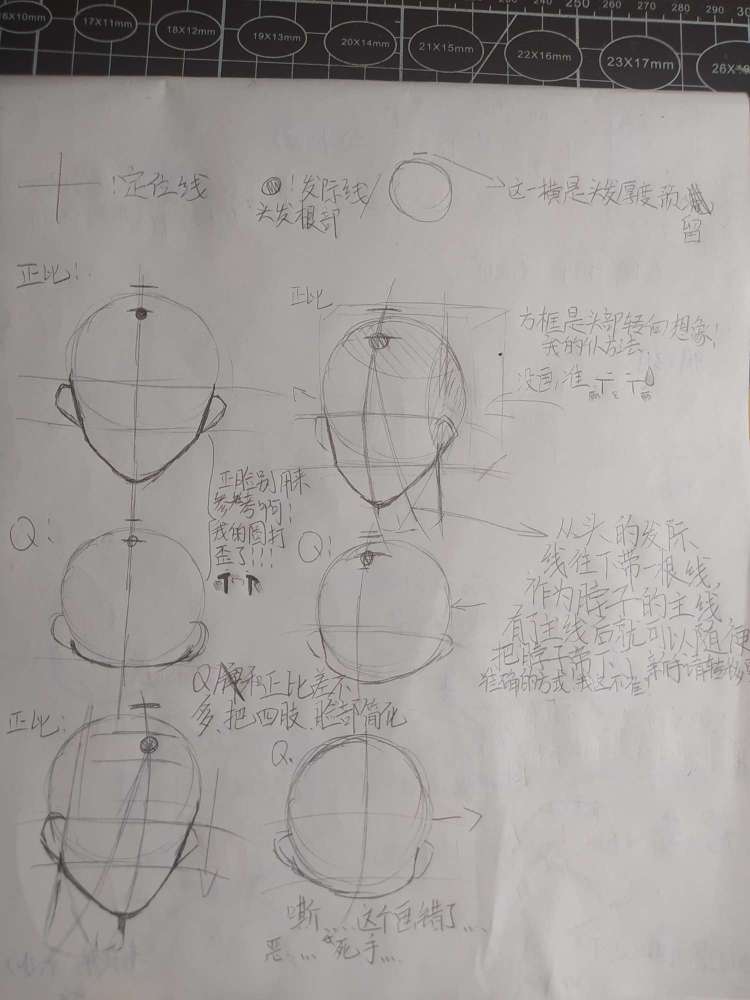 240 250 260 270 280 290 30
16X10mm 17X11mm 18X12mm 19X13mm 20X14mm 21X15mm 22X16mm 23X17mm 26X
!定位线
!发际线/
头发根部
这一横是头发厚度预
留
正比!
正比
方框是头部转向想像!
我的仆方法
没画准
正脸别用来
参考啊!
我的圈打
歪了!!!
T-T
Q!
Q!
从头的发际
线往下带一根线,
作为脖子的主线
有了主线后就可以随便
把脖子带下
准确的方式
Q和正比差不
多,把四肢、脸部简化
正比:
Q.
嘶....这个画错了....
恶....死手....